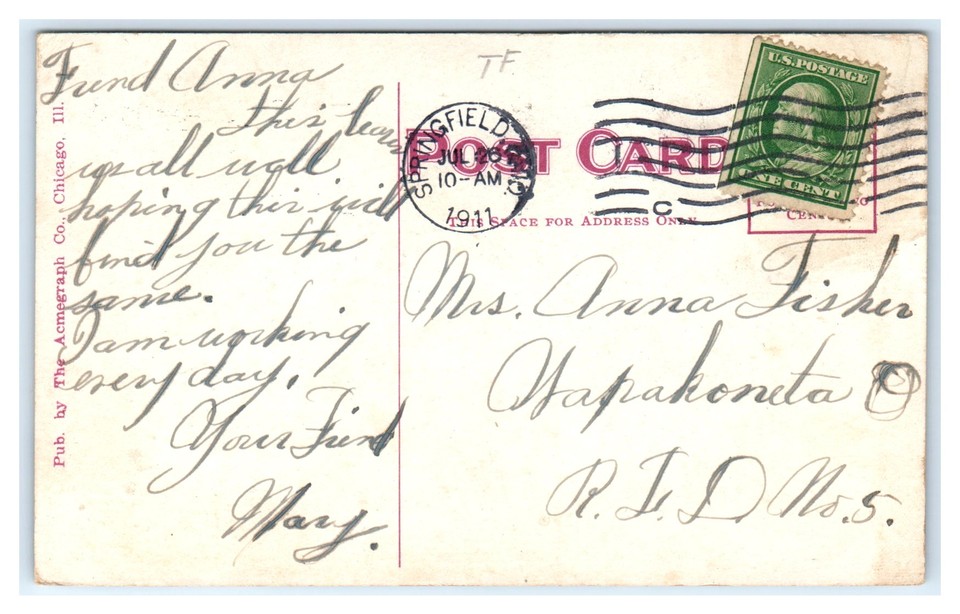 Frend Anna
this leaves
us all well
hoping this will
find you the
same.
I am working
every day.
Your Friend
Mary.
Pub. by The Acmegraph Co., Chicago, Ill.
TF
POST CARD
THIS SPACE FOR ADDRESS ONLY
SPRINGFIELD
JUL 26
10-AM
1911
C
U.S. POSTAGE
ONE CENT
Mrs. Anna Fisher
Wapakoneta O
R. F. D. No. 5.